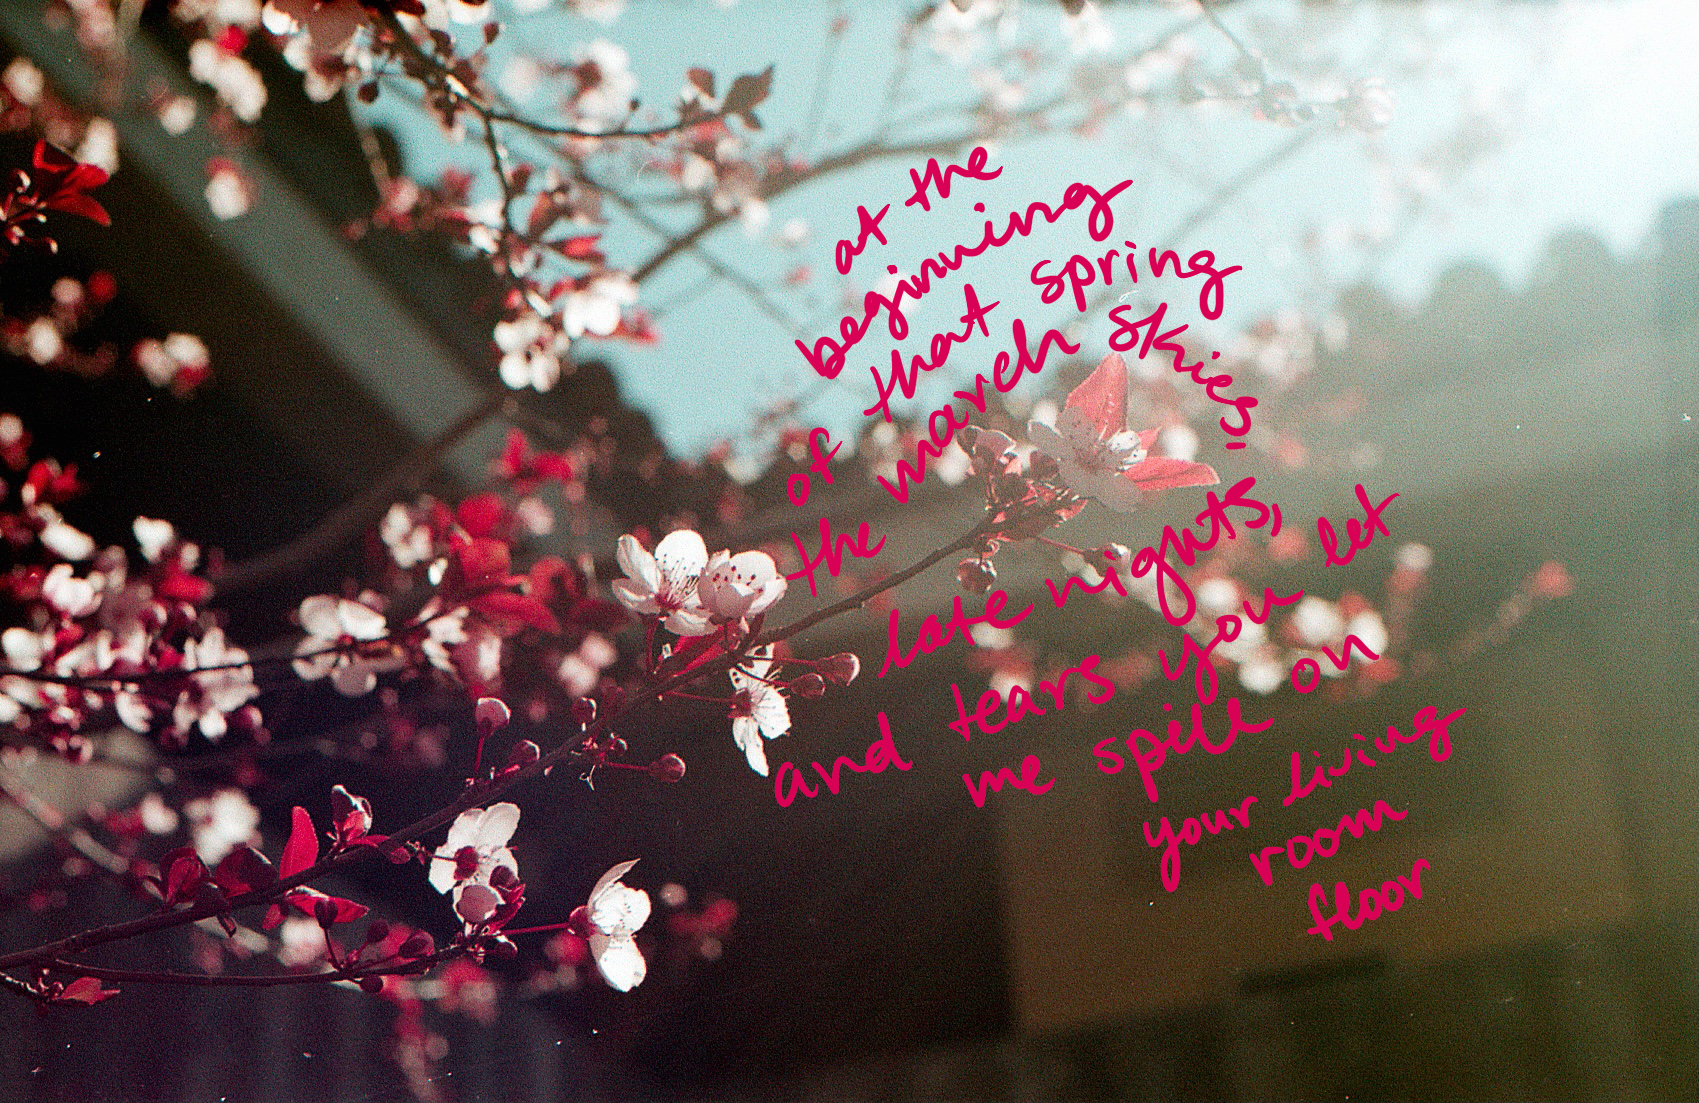 at the
beginning
of that spring
the march skies,
late nights,
and tears you let
me spill on
your living
room
floor